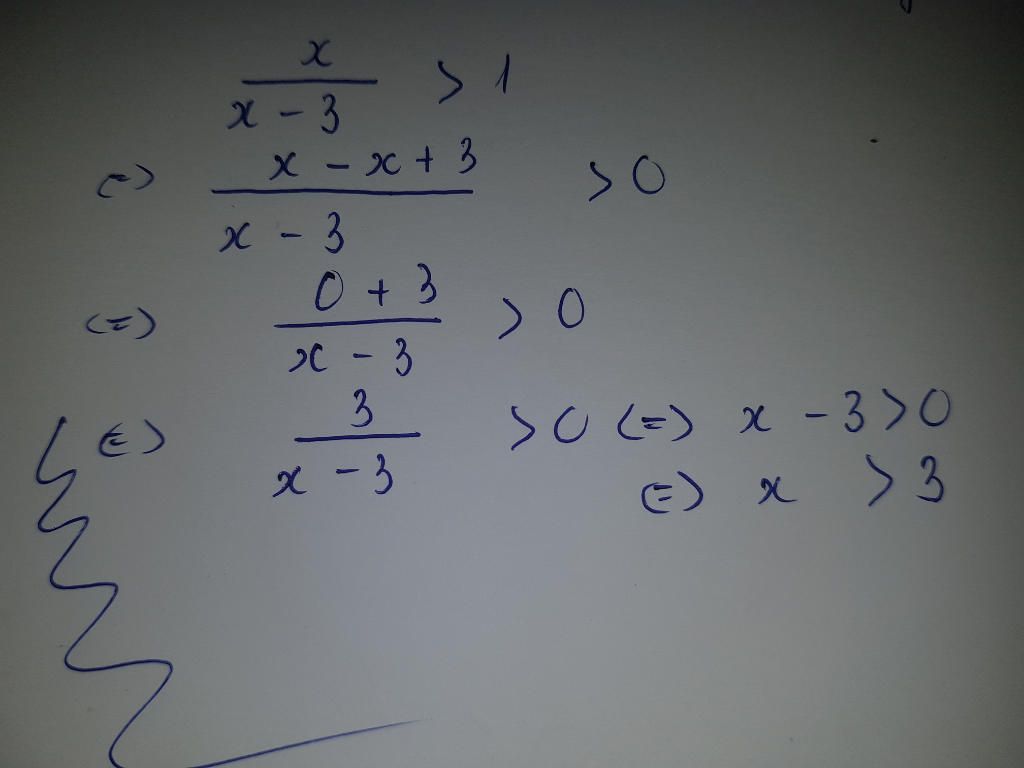 x / (x - 3) > 1
(=) (x - x + 3) / (x - 3) > 0
(=) (0 + 3) / (x - 3) > 0
(=) 3 / (x - 3) > 0 (=) x - 3 > 0
(=) x > 3